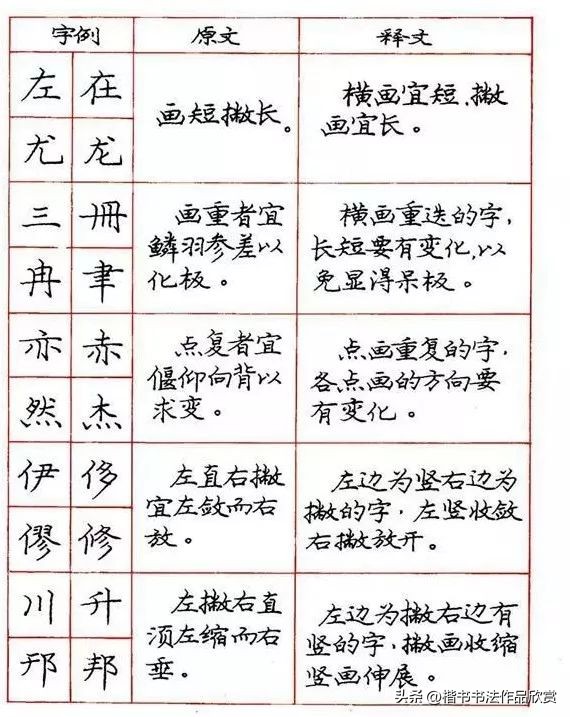 字例 原文 释文
左 在
尤 龙
画短撇长。
横画宜短,撇
画宜长。
三 冊
冉 聿
画重者宜
鳞羽参差以
化板。
横画重迭的字,
长短要有变化,以
免显得呆板。
亦 赤
然 杰
点复者宜
偃仰向背以
求变。
点画重复的字,
各点画的方向要
有变化。
伊 侈
僇 修
左直右撇
宜左敛而右
放。
左边为竖右边为
撇的字,左竖收敛
右撇放开。
川 升
邢 邦
左撇右直
须左缩而右
垂。
左边为撇右边有
竖的字,撇画收缩
竖画伸展。
头条 @楷书书法作品欣赏